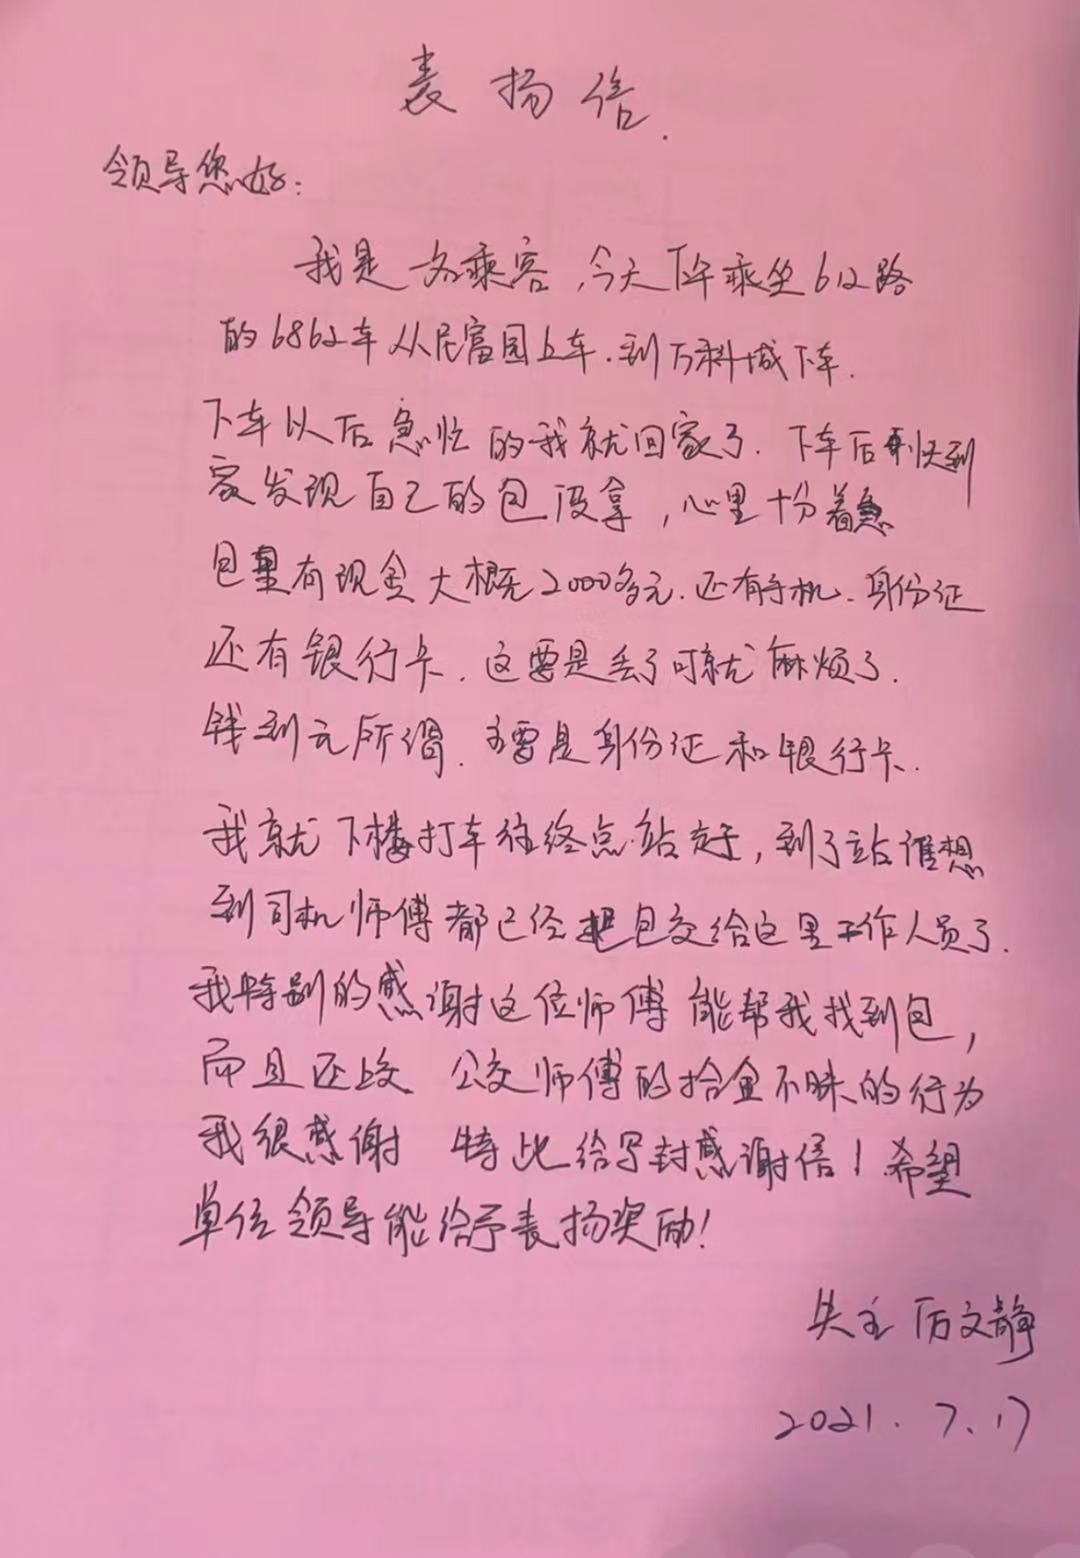 表扬信.
领导您好:
我是一名乘客,今天下午乘坐612路
的6862车从民富园上车.到万科城下车.
下车以后急忙的我就回家了.下车后快到
家发现自己的包没拿,心里十份着急
包里有现金大概2000多元.还有手机.身份证
还有银行卡.这要是丢了可就麻烦了.
钱到无所谓.主要是身份证和银行卡.
我就下楼打车往终点站走,到了站谁想
到司机师傅都已经把包交给这里工作人员了.
我特别的感谢这位师傅能帮我找到包,
而且还上交 公交师傅的拾金不昧的行为
我很感谢 特此给写封感谢信!希望
单位领导能给予表扬奖励!
失主 厉文静
2021.7.17